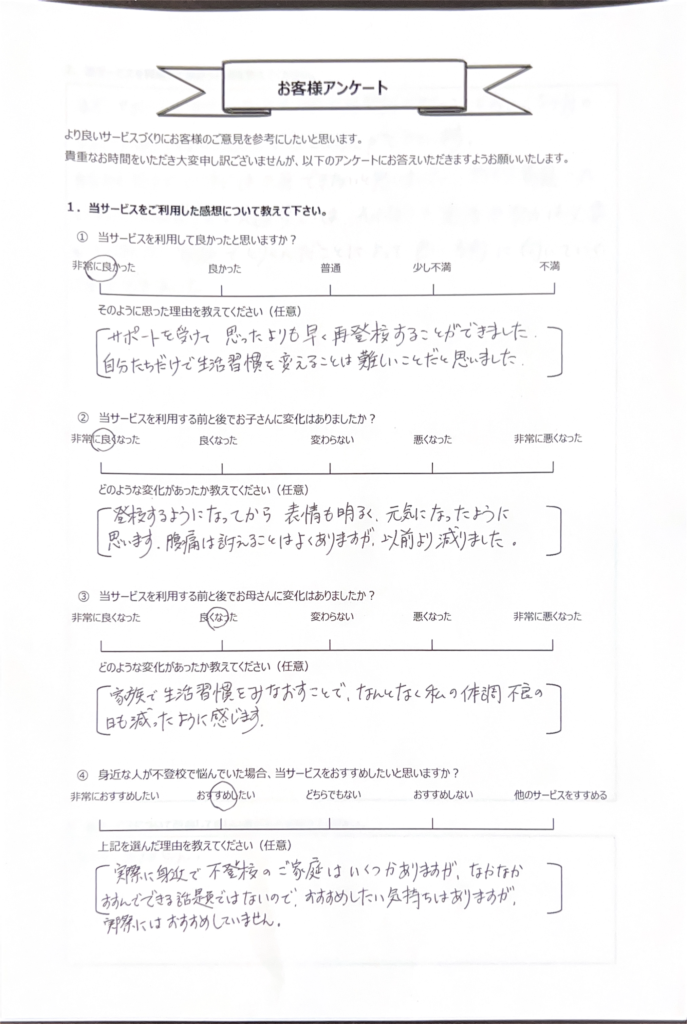 お客様アンケート
より良いサービスづくりにお客様のご意見を参考にしたいと思います。
貴重なお時間をいただき大変申し訳ございませんが、以下のアンケートにお答えいただきますようお願いいたします。
1．当サービスをご利用した感想について教えて下さい。
① 当サービスを利用して良かったと思いますか？
非常に良かった 良かった 普通 少し不満 不満
そのように思った理由を教えてください（任意）
サポートを受けて 思ったよりも早く再登校することができました.
自分たちだけで生活習慣を変えることは難しいことだと思いました.
② 当サービスを利用する前と後でお子さんに変化はありましたか？
非常に良くなった 良くなった 変わらない 悪くなった 非常に悪くなった
どのような変化があったか教えてください（任意）
登校するようになってから 表情も明るく、元気になったように
思います. 腹痛は訴えることはよくありますが、以前より減りました。
③ 当サービスを利用する前と後でお母さんに変化はありましたか？
非常に良くなった 良くなった 変わらない 悪くなった 非常に悪くなった
どのような変化があったか教えてください（任意）
家族で生活習慣をみなおすことで、なんとなく私の体調不良の
日も減ったように感じます.
④ 身近な人が不登校で悩んでいた場合、当サービスをおすすめしたいと思いますか？
非常におすすめしたい おすすめしたい どちらでもない おすすめしない 他のサービスをすすめる
上記を選んだ理由を教えてください（任意）
実際に身近で不登校のご家庭はいくつかありますが、なかなか
すすんでできる話題ではないので、おすすめしたい気持ちはありますが、
実際にはおすすめしていません。